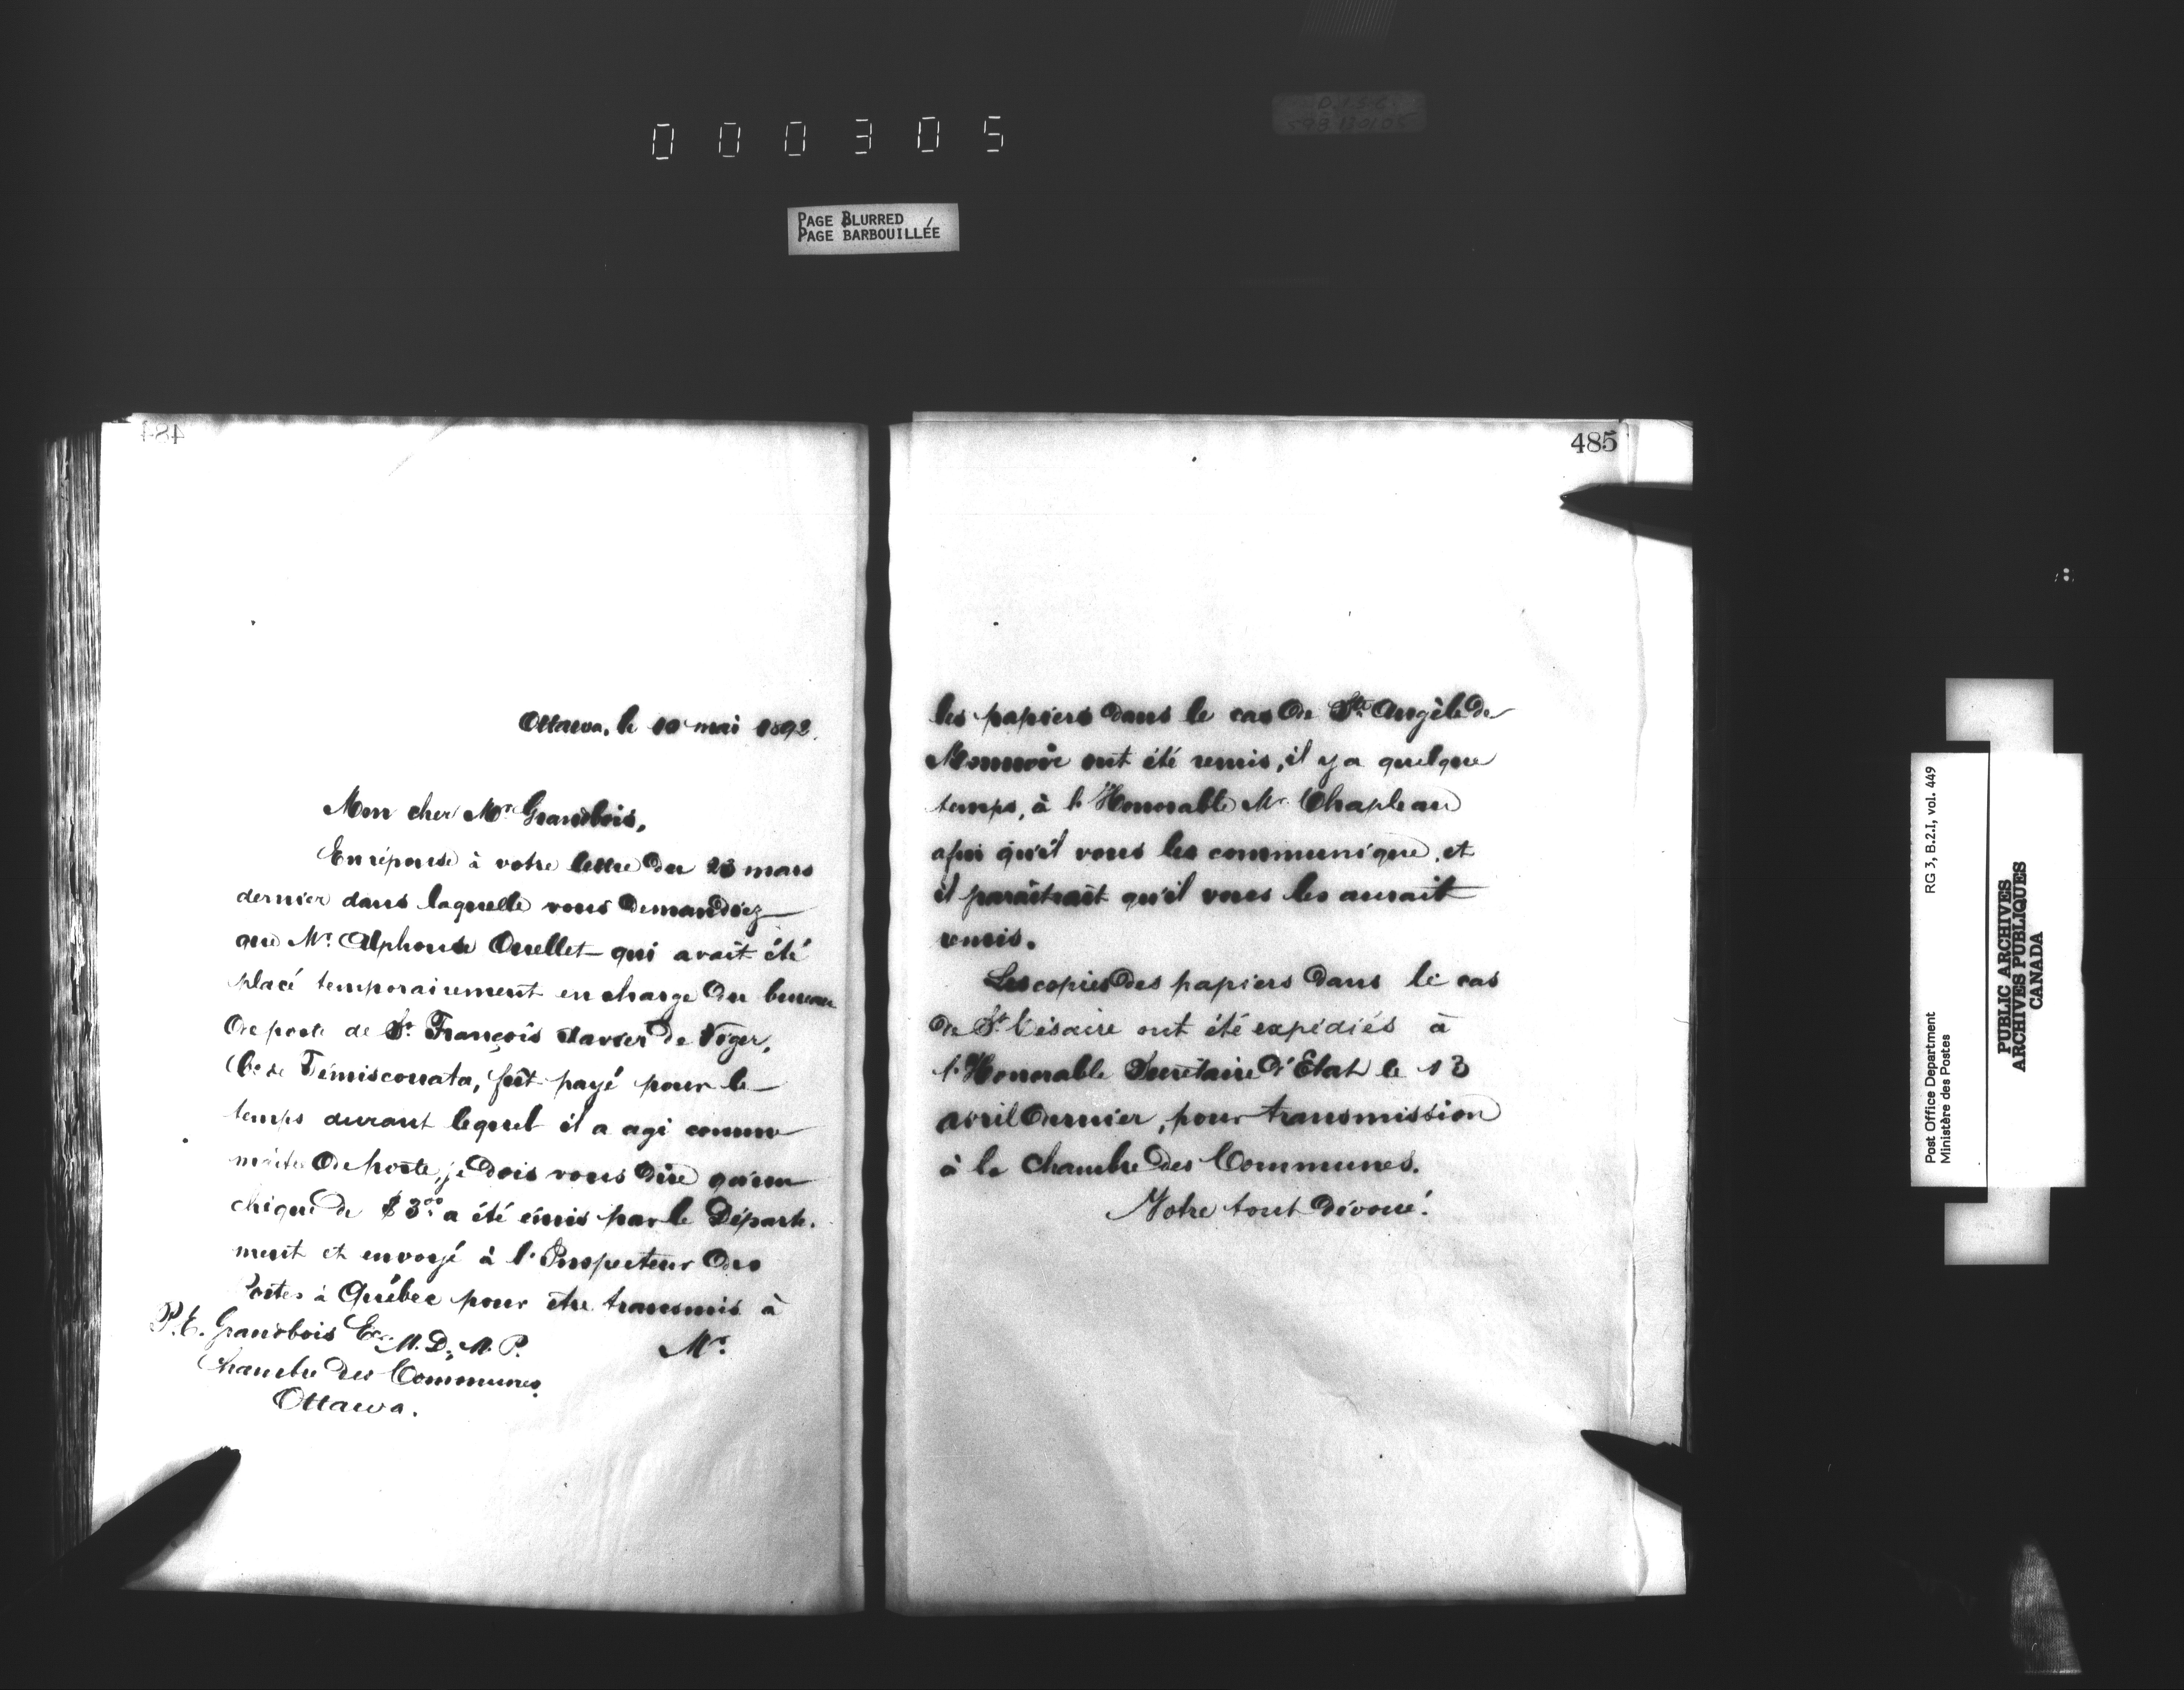 000305
D.1.5.6
PAGE BLURRED
PAGE BARBOUILLÉE
484
Ottawa, le 10 mai 1892.
Mon cher Mr. Grandbois,
En réponse à votre lettre du 23 mars
dernier dans laquelle vous demandiez
que Mr. Alphonse Ouellet qui avait été
placé temporairement en charge du bureau
de poste de St. François Xavier de Viger,
Co. de Témiscouata, fût payé pour le
temps durant lequel il a agi comme
maître de poste, je dois vous dire qu'un
chèque de $3.00 a été émis par le Départe-
ment et envoyé à l'Inspecteur des
Postes à Québec pour être transmis à
Mr.
P. E. Grandbois Ecr. M.D., M.P.
Chambre des Communes,
Ottawa.
485
les papiers dans le cas de Ste. Angèle de
Monnoir ont été remis, il y a quelque
temps, à l'Honorable Mr. Chapleau
afin qu'il vous les communique, et
il paraîtrait qu'il vous les aurait
remis.
Les copies des papiers dans le cas
de St. Césaire ont été expédiés à
l'Honorable Secrétaire d'Etat le 13
avril dernier, pour transmission
à la Chambre des Communes.
Votre tout dévoué.
Post Office Department
Ministère des Postes
RG 3, B.2.I, vol. 449
PUBLIC ARCHIVES
ARCHIVES PUBLIQUES
CANADA